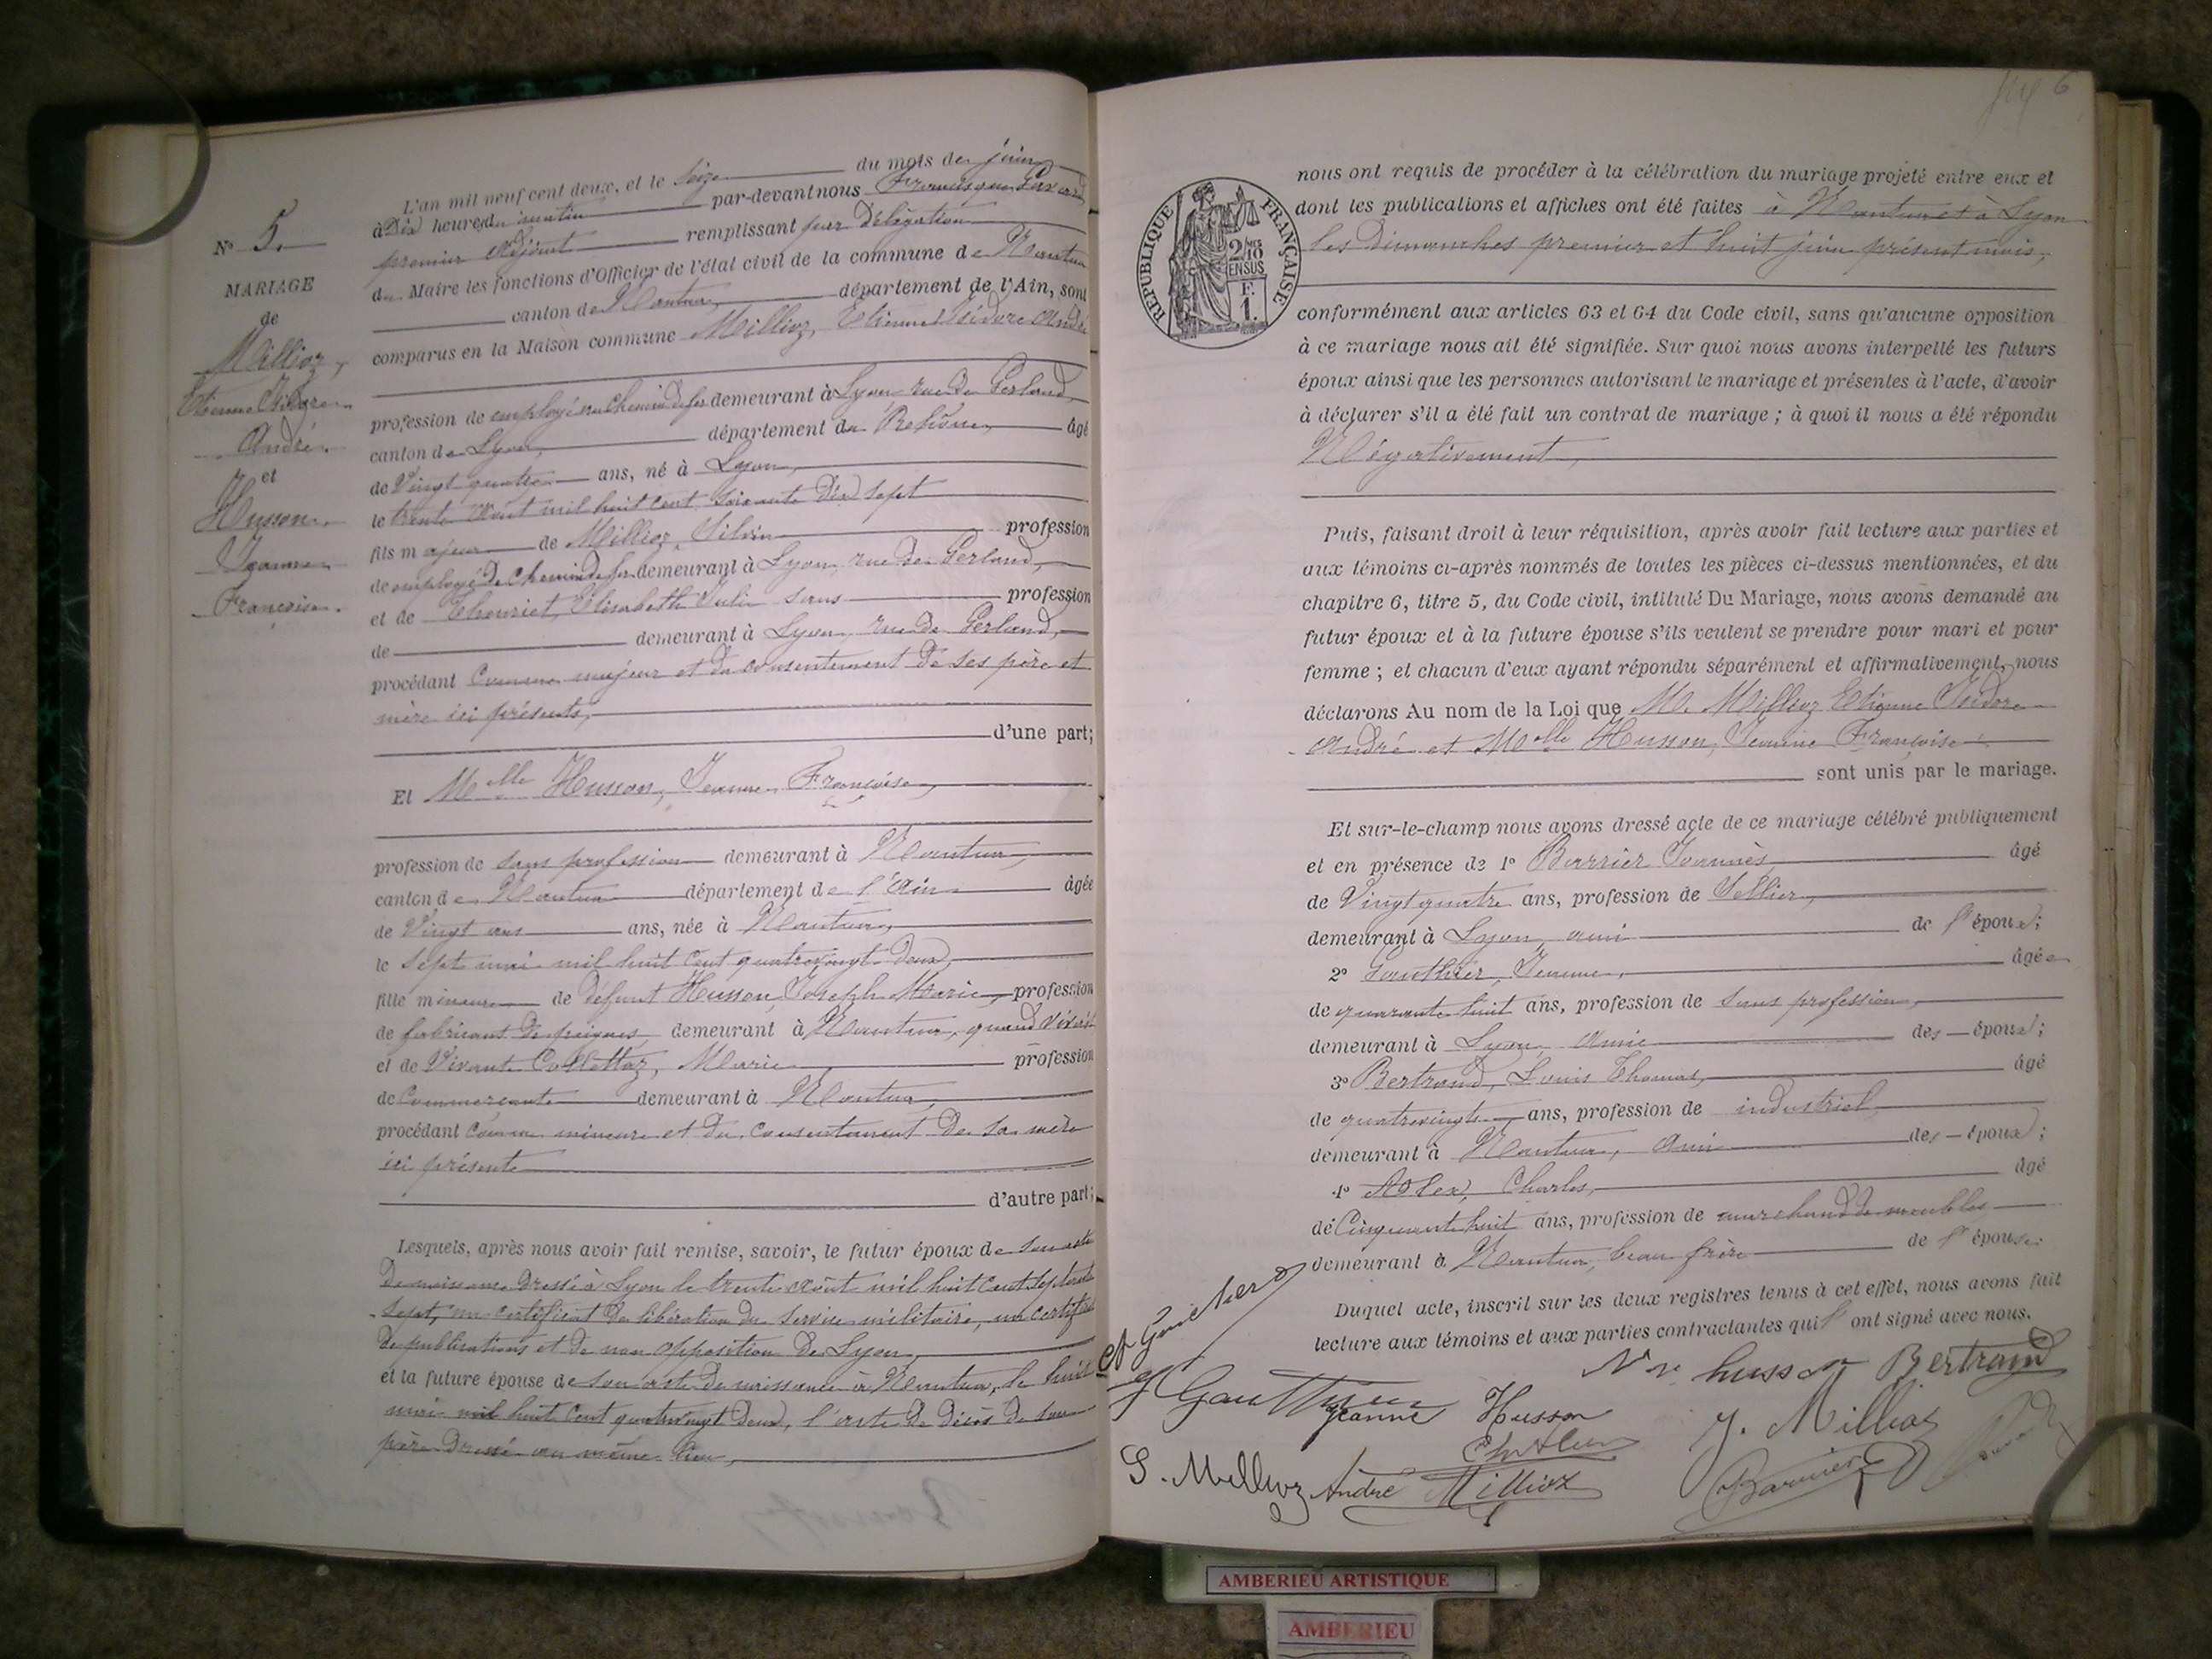 N° 5.
MARIAGE
de
Millioz,
Etienne Isidore
André
et
Husson
Jeanne
Françoise.
L'an mil neuf cent deux, et le Seize du mois de juin
à Dix heures du matin par-devant nous Francisque
premier adjoint remplissant par Délégation
du Maire les fonctions d'Officier de l'état civil de la commune de Nantua
canton de Nantua, département de l'Ain, sont
comparus en la Maison commune Millioz, Etienne Isidore André
profession de employé au chemin de fer demeurant à Lyon rue de Gerland,
canton de Lyon, département du Rhône, âgé
de Vingt quatre ans, né à Lyon,
le trente Août mil huit cent soixante dix sept
fils majeur de Millioz, Silvin profession
de employé de chemin de fer demeurant à Lyon, rue de Gerland,
et de Thouriet, Elisabeth Julie sans profession
de demeurant à Lyon, rue de Gerland,
procédant Comme majeur et du consentement de ses père et
mère ici présents,
d'une part;
Et Melle Husson, Jeanne Françoise,
profession de sans profession demeurant à Nantua,
canton de Nantua département de l'Ain âgée
de Vingt ans ans, née à Nantua,
le Sept mai mil huit cent quatre vingt Deux,
fille mineure de défunt Husson, Joseph Marie, profession
de fabricant de peignes, demeurant à Nantua, quand vivait
et de Vivante Collettaz, Marie profession
de Commerçante demeurant à Nantua,
procédant Comme mineure et du consentement de sa mère
ici présente
d'autre part;
Lesquels, après nous avoir fait remise, savoir, le futur époux de son acte
De naissance Dressé à Lyon le trente août mil huit cent septante
sept, un certificat de libération du service militaire, un certificat
de publications et de non opposition de Lyon,
et la future épouse de son acte de naissance à Nantua, le huit
mai mil huit cent quatre vingt deux, l'acte de décès de son
père Dressé au même lieu,
6
RÉPUBLIQUE FRANÇAISE
2/10
EN SUS
F.
1.
nous ont requis de procéder à la célébration du mariage projeté entre eux et
dont les publications et affiches ont été faites à Nantua et à Lyon
les Dimanches premier et huit juin présent mois,
conformément aux articles 63 et 64 du Code civil, sans qu'aucune opposition
à ce mariage nous ait été signifiée. Sur quoi nous avons interpellé les futurs
époux ainsi que les personnes autorisant le mariage et présentes à l'acte, d'avoir
à déclarer s'il a été fait un contrat de mariage ; à quoi il nous a été répondu
Négativement,
Puis, faisant droit à leur réquisition, après avoir fait lecture aux parties et
aux témoins ci-après nommés de toutes les pièces ci-dessus mentionnées, et du
chapitre 6, titre 5, du Code civil, intitulé Du Mariage, nous avons demandé au
futur époux et à la future épouse s'ils veulent se prendre pour mari et pour
femme ; et chacun d'eux ayant répondu séparément et affirmativement, nous
déclarons Au nom de la Loi que M. Millioz Etienne Isidore
André et Melle Husson, Jeanne Françoise
sont unis par le mariage.
Et sur-le-champ nous avons dressé acte de ce mariage célébré publiquement
et en présence de 1° Barrier Joannès, âgé
de Vingt quatre ans, profession de Sellier,
demeurant à Lyon, ami de l'époux;
2° Gauthier, Jeanne, âgée
de quarante huit ans, profession de sans profession,
demeurant à Lyon, Amie des époux;
3° Bertrand, Louis Thomas, âgé
de quatre vingts ans, profession de industriel
demeurant à Nantua, Ami des époux;
4° Adler, Charles, âgé
de Cinquante huit ans, profession de marchand de meubles
demeurant à Nantua, beau frère de l'épouse
Duquel acte, inscrit sur les deux registres tenus à cet effet, nous avons fait
lecture aux témoins et aux parties contractantes qui ont signé avec nous.
Vve husson Bertrand
J Gauthier
Jeanne Husson
J. Millioz
S. Millioz André Millioz
Barrier
AMBERIEU ARTISTIQUE
AMBERIEU